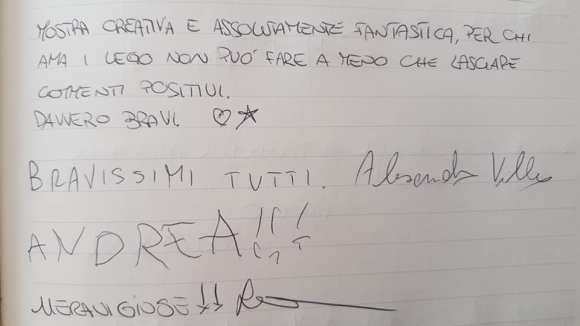 MOSTRA CREATIVA E ASSOLUTAMENTE FANTASTICA, PER CHI
AMA I LEGO NON PUO' FARE A MENO CHE LASCIARE
COMMENTI POSITIVI.
DAVVERO BRAVI. ♡☆
BRAVISSIMI TUTTI.
ANDREA!!!
MERAVIGIOSE!!